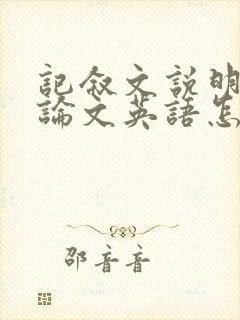 記敘文說明
論文英語怎
邵音音